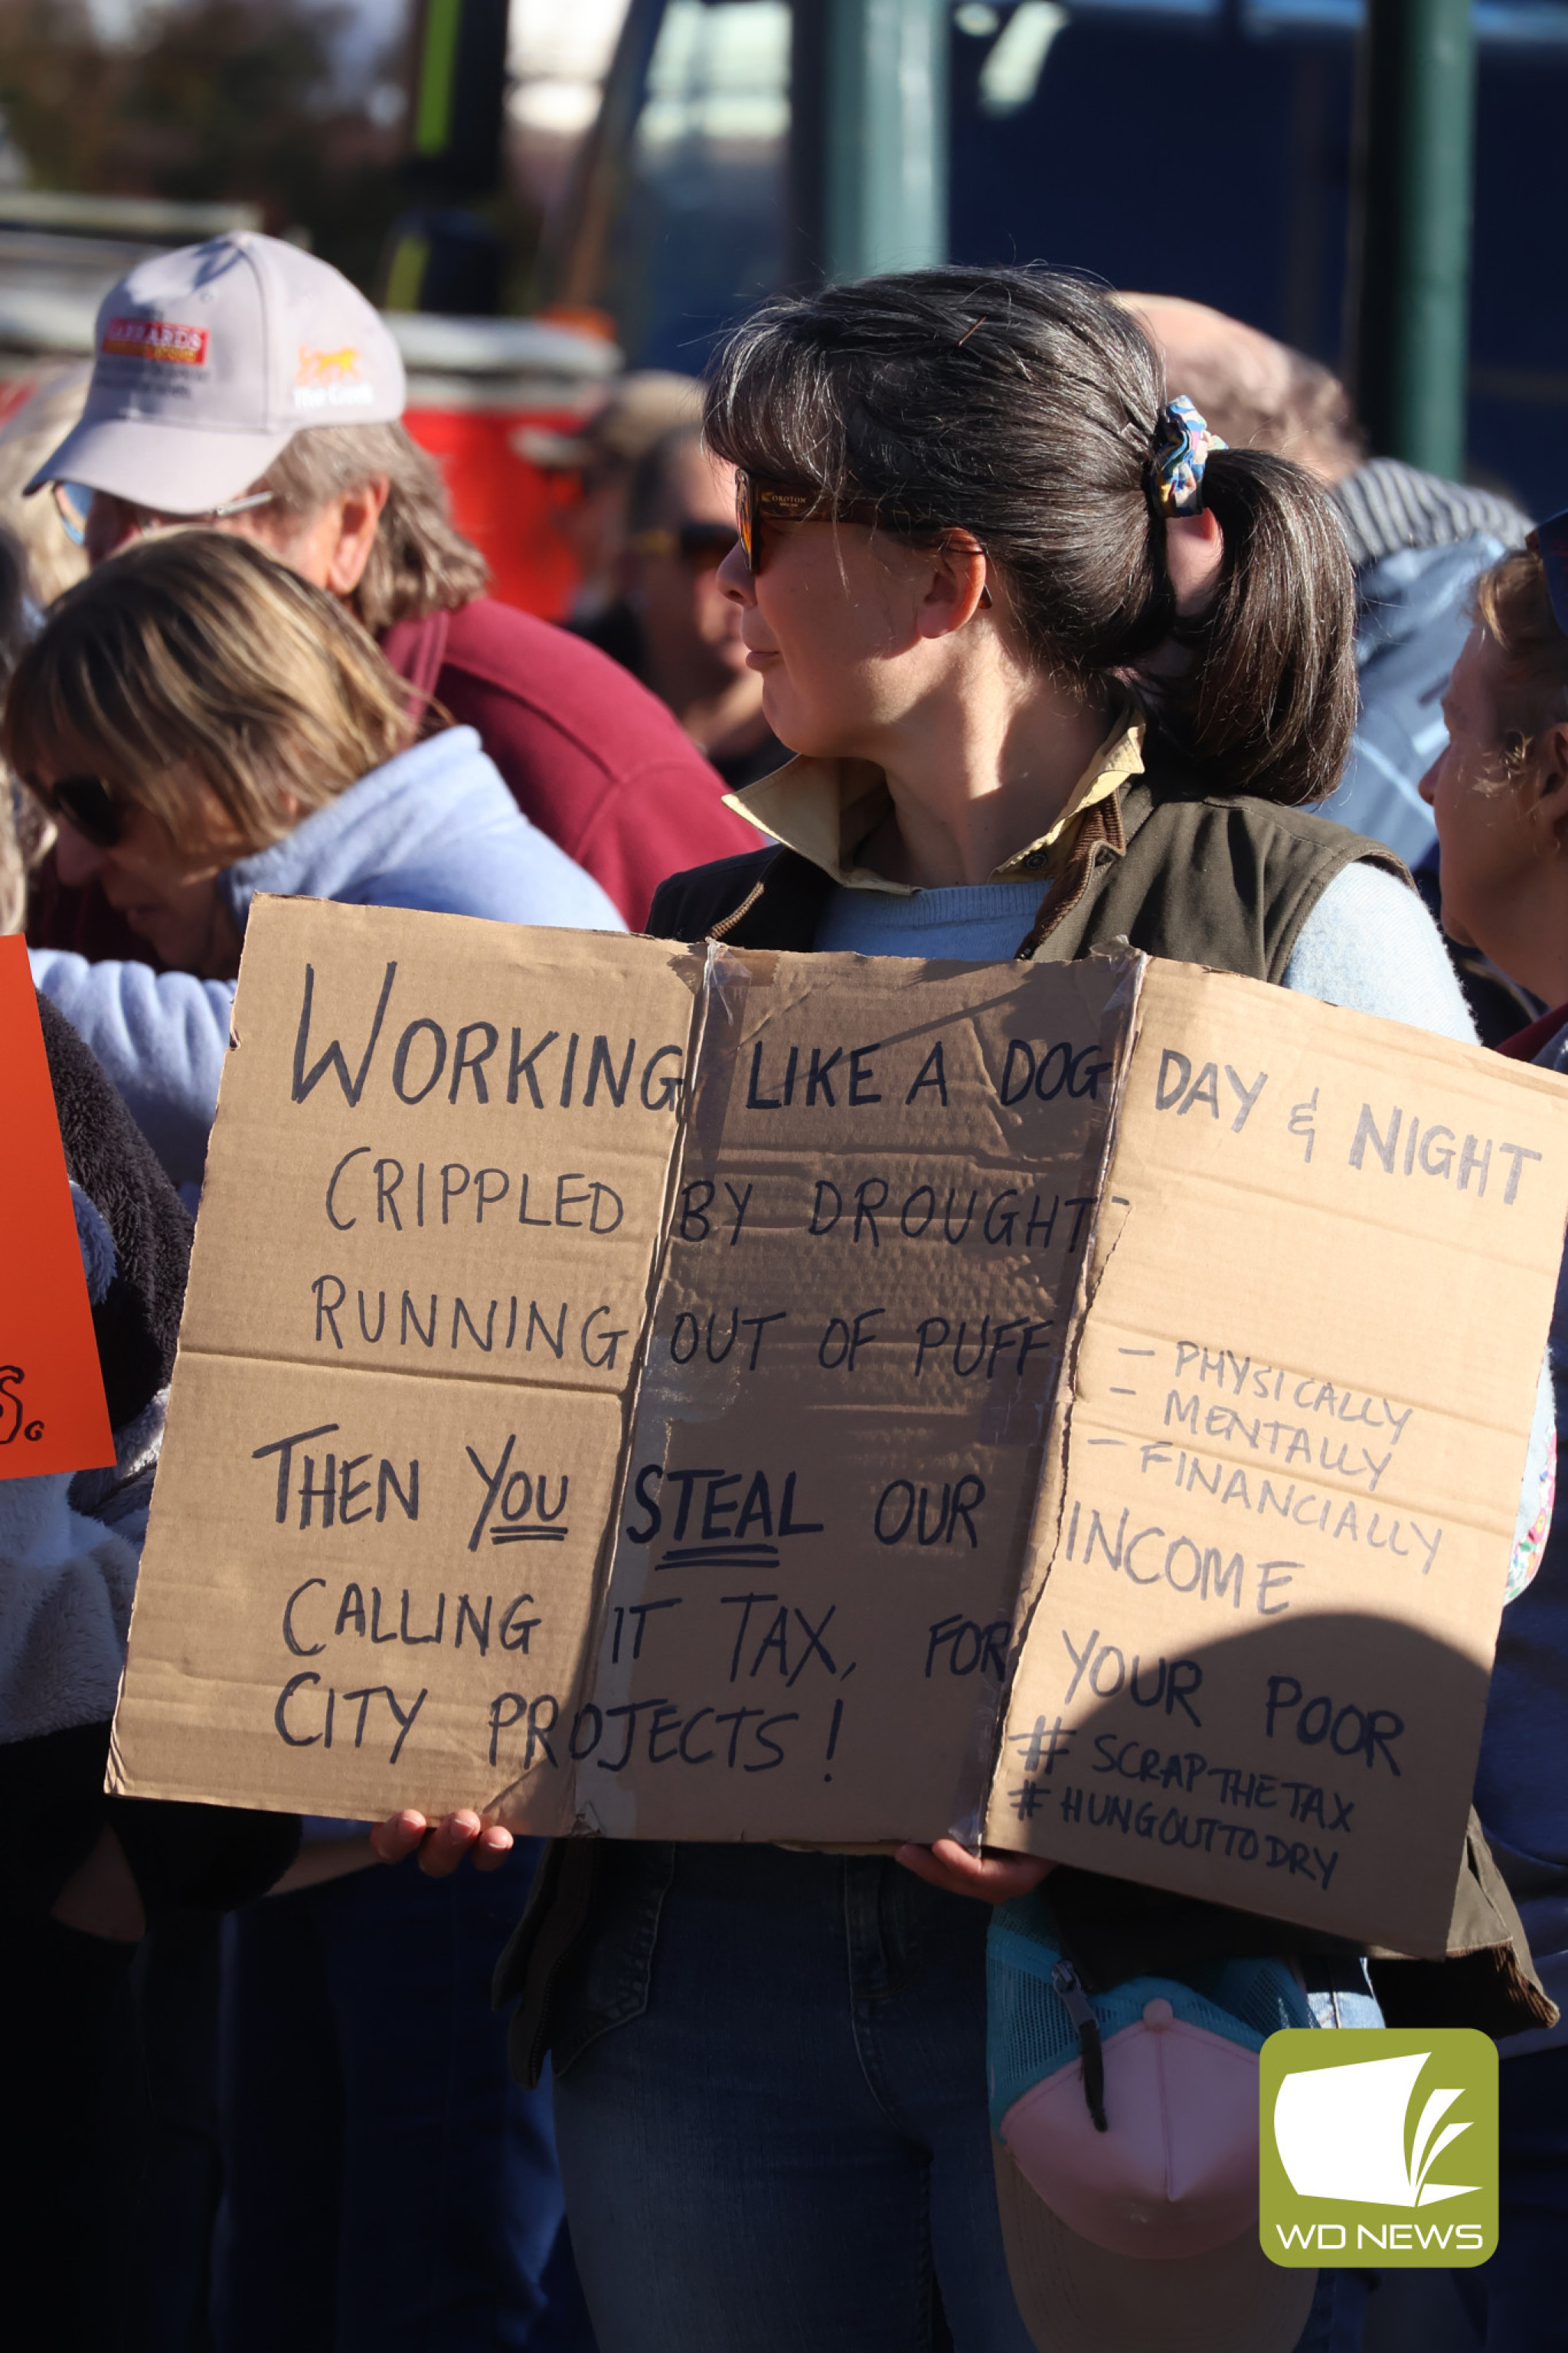 OROTON
WORKING LIKE A DOG DAY & NIGHT
CRIPPLED BY DROUGHT -
RUNNING OUT OF PUFF
- PHYSICALLY
- MENTALLY
- FINANCIALLY
THEN YOU STEAL OUR INCOME
CALLING IT TAX, FOR YOUR POOR
CITY PROJECTS!
# SCRAPTHETAX
# HUNGOUTTODRY
S.
WD NEWS